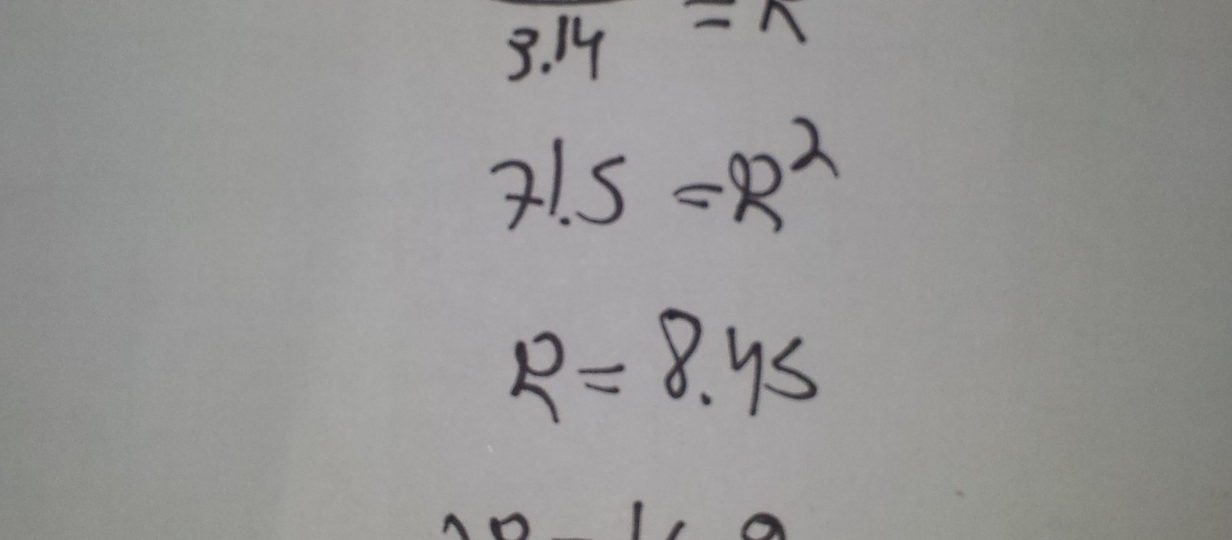 3.14 = R
71.5 = R²
R = 8.45